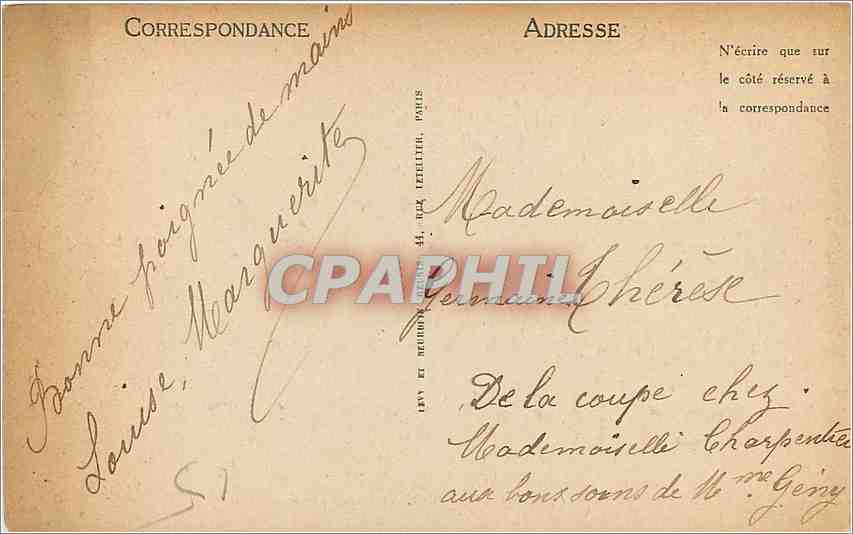 CORRESPONDANCE
ADRESSE
N'écrire que sur
le côté réservé à
la correspondance
Bonne poignée de mains
Louise, Marguerite
LÉVY ET NEURDEIN RÉUNIS, 44, RUE LETELLIER, PARIS
CPAPHIL
Mademoiselle
Germaine Thérèse
De la coupe chez
Mademoiselle Charpentier
aux bons soins de Mme Gény